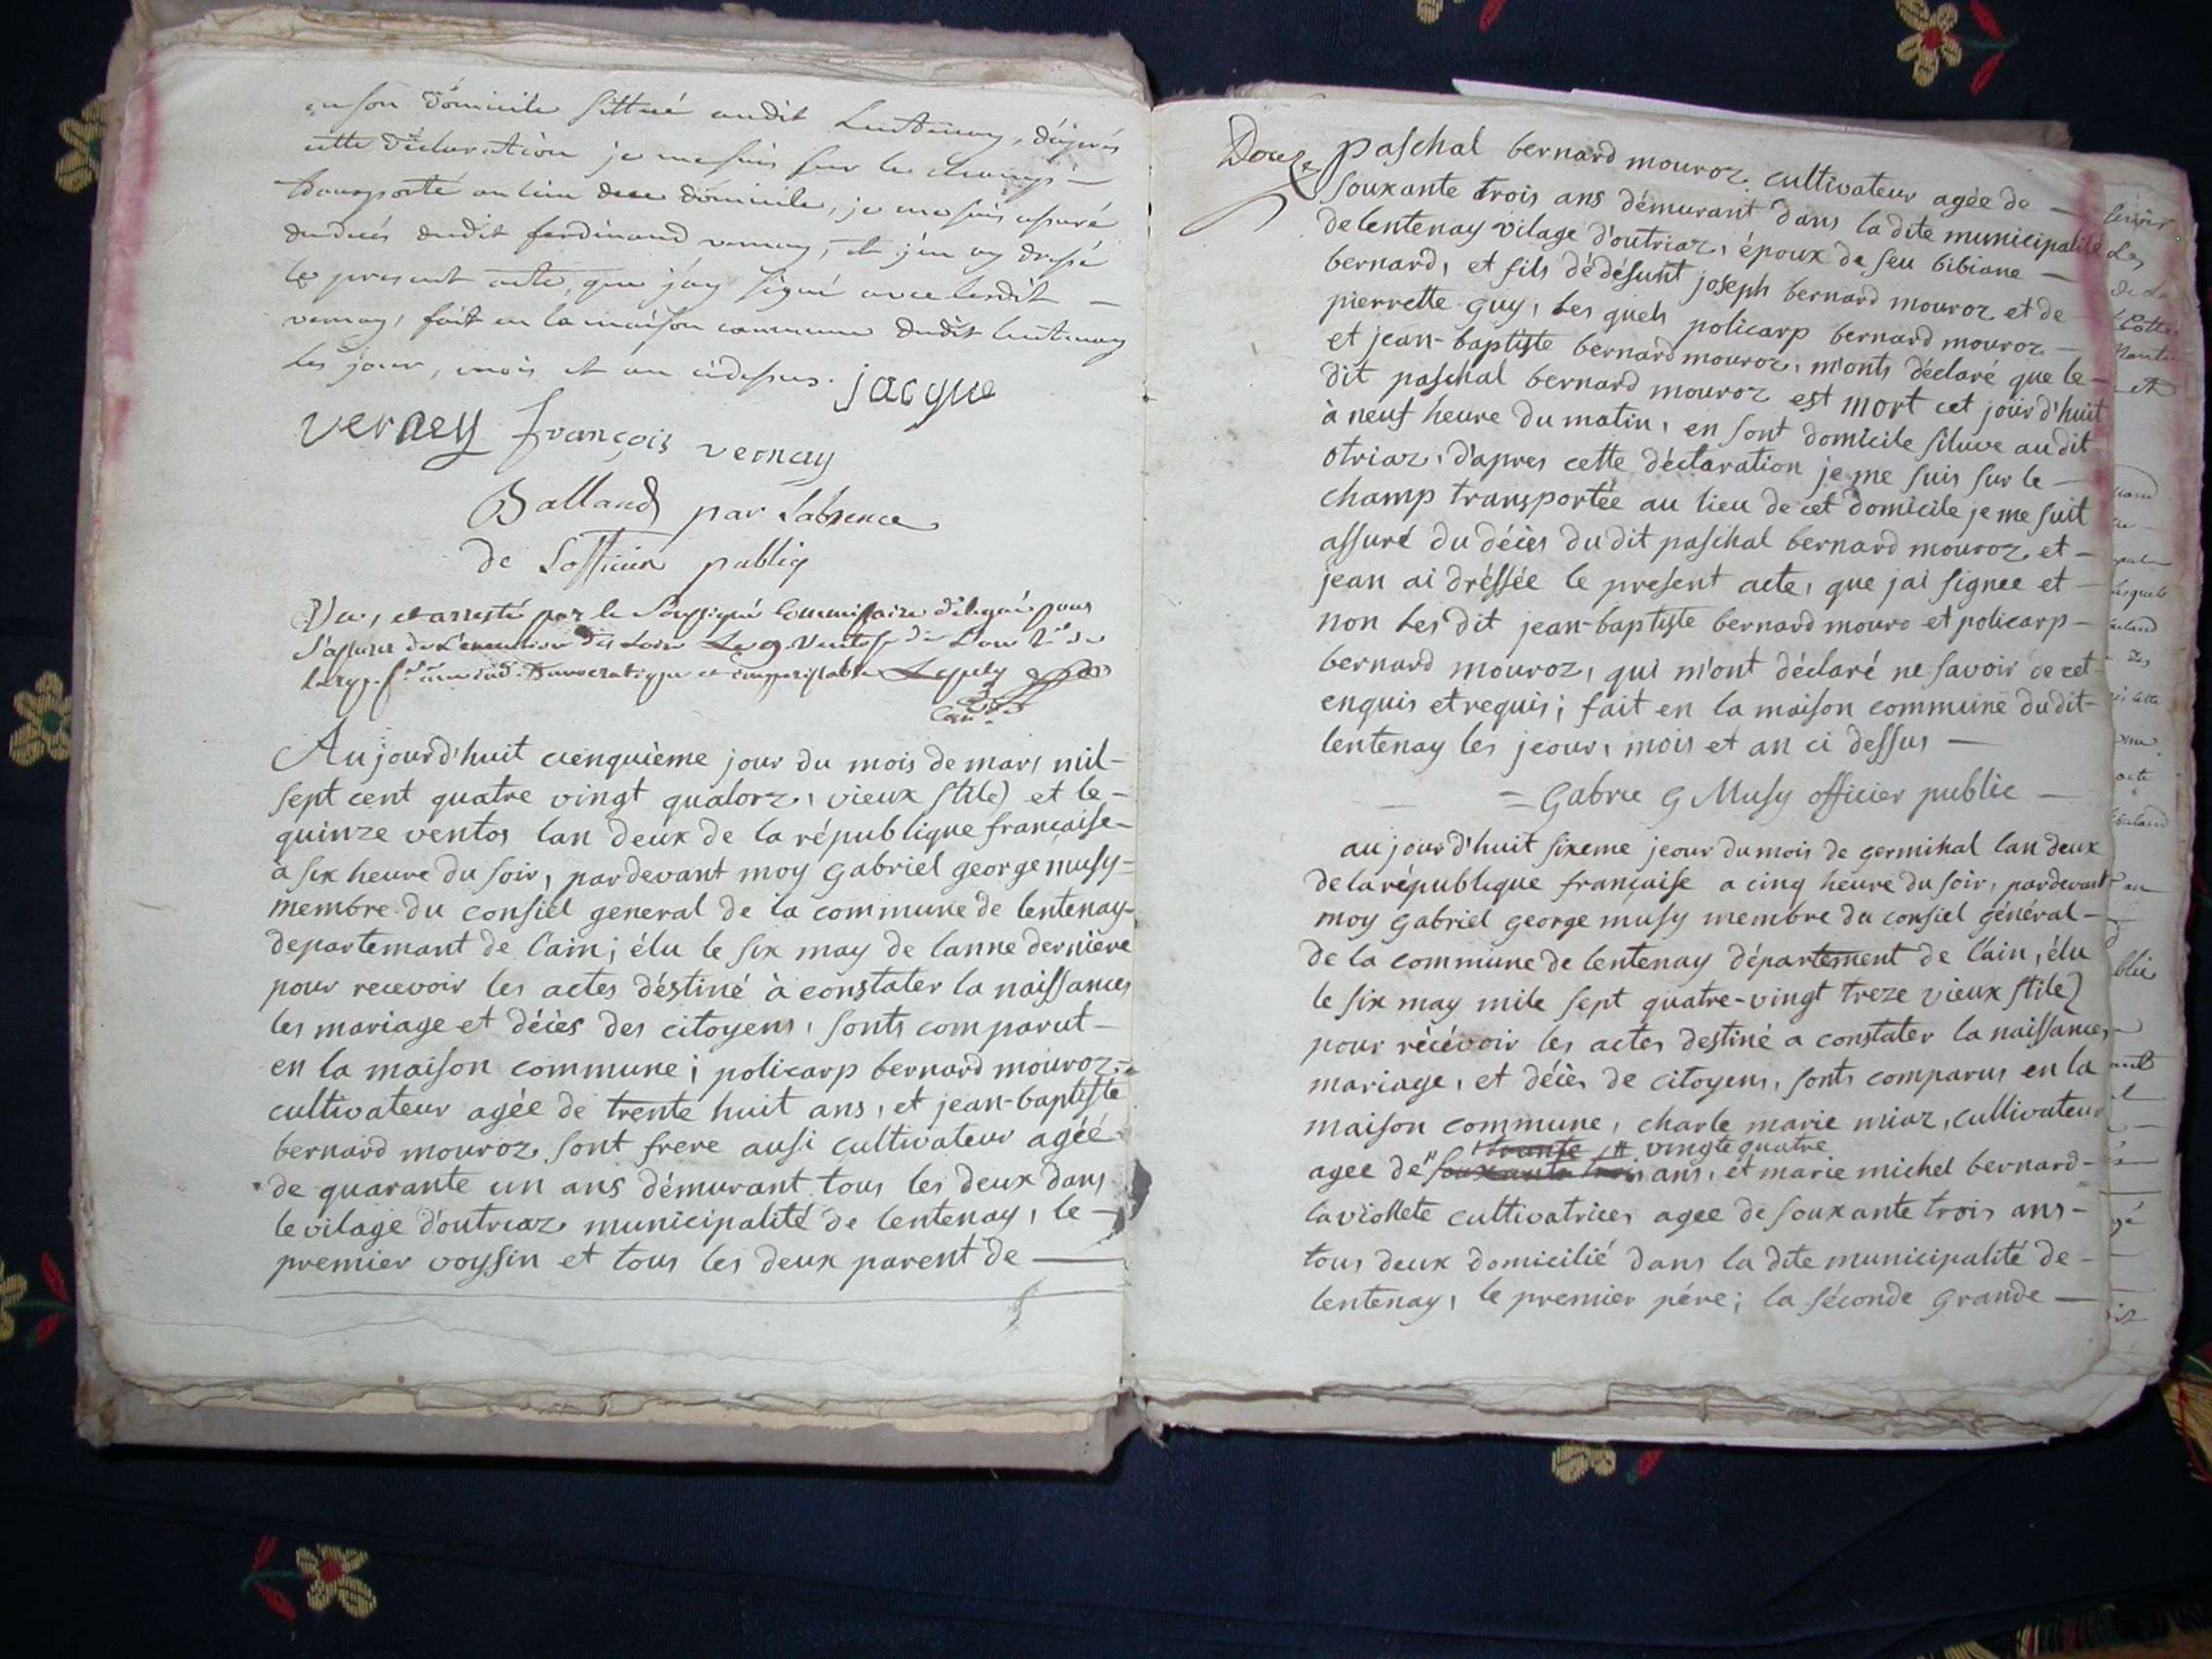 en son domicile sittué audit Lentenay, d'après
cette déclaration je me suis sur le champ
transporté au lieu dece domicile, je me suis assuré
du décès dudit ferdinand vernay, et j'en ay dressé
le present acte, que j'ay signé avec lesdit
vernay, fait en la maison commune dudit lentenay
les jour, mois et an cidessus. jacque
verney françois vernay
Balland par l'absence
de l'officier publiq
Vu, et arresté par le Soussigné Commissaire délegué pour
s'assurer de l'execution des Loix Le 9 Ventose de L'an 2e de
la rep. democratique et imperissable
Aujourd'huit cienquième jour du mois de mars mil-
sept cent quatre vingt quatorz, vieux stile) et le-
quinze ventos lan deux de la république française-
a six heure du soir, pardevant moy gabriel george musy-
membre du consiel general de la commune de lentenay-
departemant de l'ain; élu le six may de lanne derniere
pour recevoir les actes déstiné à constater la naissances
les mariage et décès des citoyens, sonts comparut-
en la maison commune; policarp bernard mouroz-
cultivateur agée de trente huit ans, et jean-baptiste
bernard mouroz sont frere ausi cultivateur agée
de quarante un ans démurant tous les deux dans
le vilage d'outriaz municipalité de lentenay, le
premier voysin et tous les deux parent de
Douze
paschal bernard mouroz cultivateur agée de
souxante trois ans démurant dans la dite municipalité
de lentenay vilage d'outriaz, époux de feu bibiane
bernard, et fils dé défunt joseph bernard mouroz et de
pierrette guy, les quels policarp bernard mouroz
et jean-baptiste bernard mouroz, m'onts déclaré que le-
dit paschal bernard mouroz est mort cet jour d'huit
à neuf heure du matin, en sont domicile situve au dit
otriaz, d'apres cette déclaration je me suis sur le
champ transportée au lieu de cet domicile je me suit
assuré du décès du dit paschal bernard mouroz et-
jean ai dréssée le present acte, que jai signee et
non les dit jean-baptiste bernard mouro et policarp-
bernard mouroz, qui m'ont déclaré ne savoir de cet
enquis et requis; fait en la maison commune dudit-
lentenay les jeour, mois et an ci dessus
= Gabrie G Musy officier public
au jour d'huit sixeme jeour du mois de germinal lan deux
de la république française a cinq heure du soir, pardevant
moy gabriel george musy membre du consiel général-
de la commune de lentenay département de l'ain, élu
le six may mile sept quatre-vingt treze vieux stile)
pour récévoir les actes destiné a constater la naissances
mariage, et décès de citoyens, sonts comparus en la
maison commune, charle marie miaz, cultivateur
trante vingte quatre
agee de souxante trois ans, et marie michel bernard-
laviollete cultivatrices agee de souxante trois ans-
tous deux domicilié dans la dite municipalité de-
lentenay, le premier pére; la séconde grande